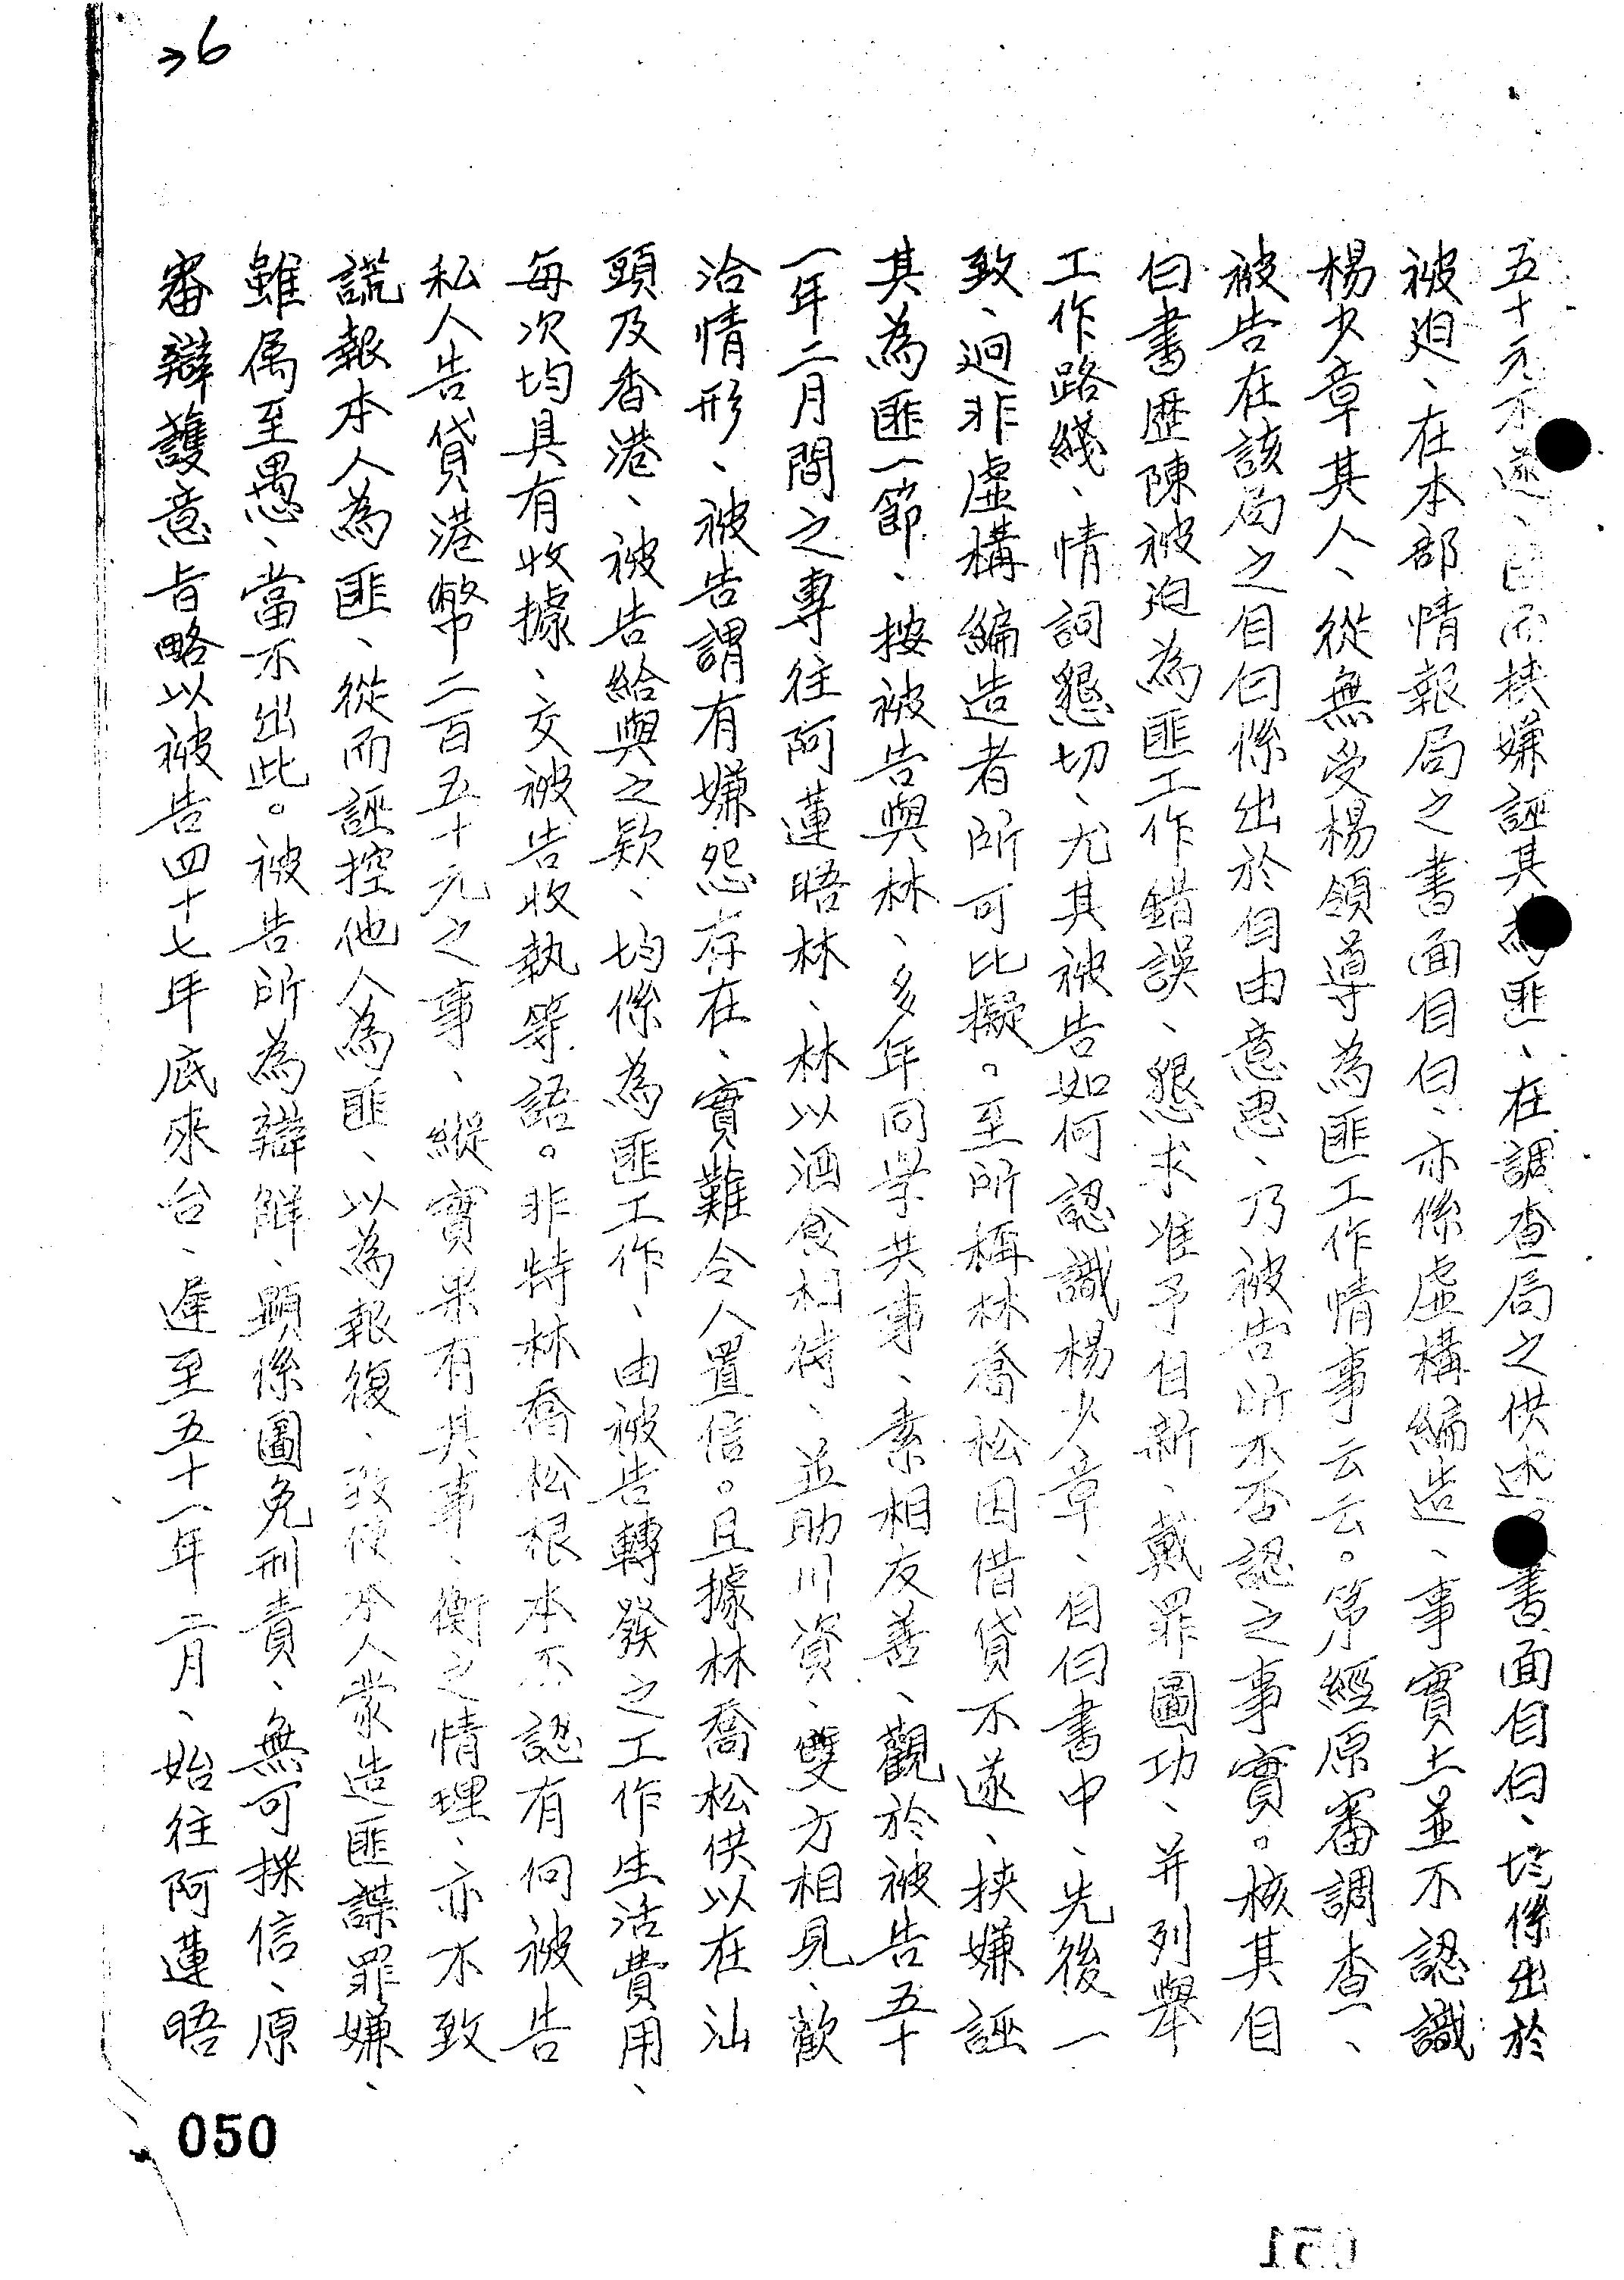 36
五十元不遂、因而挾嫌誣其為匪、在調查局之供述書面自白、均係出於
被迫、在本部情報局之書面自白、亦係虛構編造、事實上並不認識
楊少章其人、從無受楊領導為匪工作情事云云。第經原審調查一、
被告在該局之自白係出於自由意思、乃被告所不否認之事實。核其自
白書歷陳被迫為匪工作錯誤、懇求准予自新、戴罪圖功、并列舉
工作路綫、情詞懇切、尤其被告如何認識楊少章、自白書中、先後一
致、迥非虛構編造者所可比擬。至所稱林喬松因借貸不遂、挾嫌誣
其為匪一節、按被告與林、多年同学共事、素相友善、觀於被告五十
一年二月間之專往阿蓮晤林、林以酒食相待、並助川資、雙方相見、歡
洽情形、被告謂有嫌怨存在、實難令人置信。且據林喬松供以在汕
頭及香港、被告給與之欵、均係為匪工作、由被告轉發之工作生活費用、
每次均具有收據、交被告收執等語。非特林喬松根本不認有向被告
私人告貸港幣二百五十元之事、縱實果有其事、衡之情理、亦不致
謊報本人為匪、從而誣控他人為匪、以為報復、致使本人蒙造匪諜罪嫌、
雖属至愚、當不出此。被告所為辯解、顯係圖免刑責、無可採信、原
審辯護意旨略以被告四十七年底來台、遲至五十一年二月、始往阿蓮晤
050
051